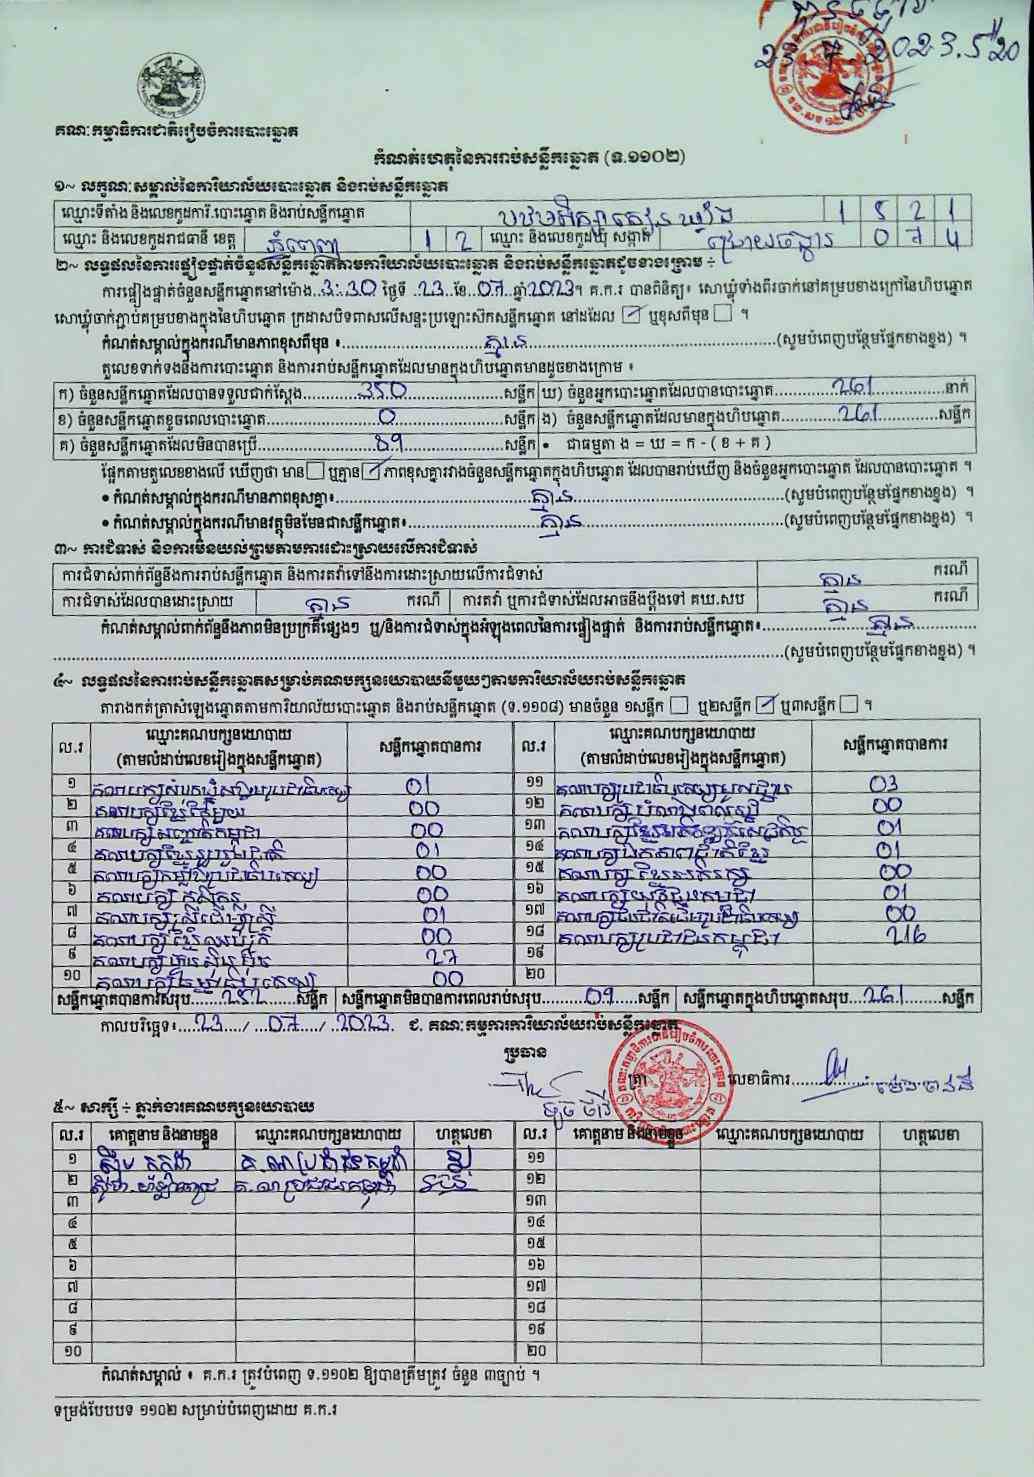 23.7.2023.ម៉ 20
គណៈកម្មាធិការជាតិរៀបចំការបោះឆ្នោត
កំណត់ហេតុនៃការរាប់សន្លឹកឆ្នោត (ទ.១១០២)
១~ លក្ខណៈសម្គាល់នៃការិយាល័យបោះឆ្នោត និងរាប់សន្លឹកឆ្នោត
ឈ្មោះទីតាំង និងលេខកូដការិ.បោះឆ្នោត និងរាប់សន្លឹកឆ្នោត 1 5 2 1
ឈ្មោះ និងលេខកូដរាជធានី ខេត្ត ភ្នំពេញ 1 2 ឈ្មោះ និងលេខកូដឃុំ សង្កាត់ ជ្រោយចង្វារ 0 7 4
២~ លទ្ធផលនៃការផ្ទៀងផ្ទាត់ចំនួនសន្លឹកឆ្នោតតាមការិយាល័យបោះឆ្នោត និងរាប់សន្លឹកឆ្នោតដូចខាងក្រោម ÷
ការផ្ទៀងផ្ទាត់ចំនួនសន្លឹកឆ្នោតនៅម៉ោង..3:30 ថ្ងៃទី..23..ខែ..07..ឆ្នាំ2023។ គ.ក.រ បានពិនិត្យ៖ សោឃ្លុំទាំងពីរចាក់នៅគម្របខាងក្រៅនៃហិបឆ្នោត
សោឃ្លុំចាក់ភ្ជាប់គម្របខាងក្នុងនៃហិបឆ្នោត ក្រដាសបិទពាសលើសន្ទះប្រឡោះស៊កសន្លឹកឆ្នោត នៅដដែល ឬខុសពីមុន ។
កំណត់សម្គាល់ក្នុងករណីមានភាពខុសពីមុន ៖ គ្មាន (សូមបំពេញបន្ថែមផ្នែកខាងខ្នង) ។
តួលេខទាក់ទងនឹងការបោះឆ្នោត និងការរាប់សន្លឹកឆ្នោតដែលមានក្នុងហិបឆ្នោតមានដូចខាងក្រោម ៖
ក) ចំនួនសន្លឹកឆ្នោតដែលបានទទួលជាក់ស្តែង 350 សន្លឹក ឃ) ចំនួនអ្នកបោះឆ្នោតដែលបានបោះឆ្នោត 261 នាក់
ខ) ចំនួនសន្លឹកឆ្នោតខូចពេលបោះឆ្នោត 0 សន្លឹក ង) ចំនួនសន្លឹកឆ្នោតដែលមានក្នុងហិបឆ្នោត 261 សន្លឹក
គ) ចំនួនសន្លឹកឆ្នោតដែលមិនបានប្រើ 89 សន្លឹក • ជាធម្មតា ង = ឃ = ក - ( ខ + គ )
ផ្អែកតាមតួលេខខាងលើ ឃើញថា មាន ឬគ្មាន ភាពខុសគ្នារវាងចំនួនសន្លឹកឆ្នោតក្នុងហិបឆ្នោត ដែលបានរាប់ឃើញ និងចំនួនអ្នកបោះឆ្នោត ដែលបានបោះឆ្នោត ។
• កំណត់សម្គាល់ក្នុងករណីមានភាពខុសគ្នា៖ គ្មាន (សូមបំពេញបន្ថែមផ្នែកខាងខ្នង) ។
• កំណត់សម្គាល់ក្នុងករណីមានវត្ថុមិនមែនជាសន្លឹកឆ្នោត៖ គ្មាន (សូមបំពេញបន្ថែមផ្នែកខាងខ្នង) ។
៣~ ការជំទាស់ និងការមិនយល់ព្រមតាមការដោះស្រាយលើការជំទាស់
ការជំទាស់ពាក់ព័ន្ធនឹងការរាប់សន្លឹកឆ្នោត និងការតវ៉ាទៅនឹងការដោះស្រាយលើការជំទាស់ គ្មាន ករណី
ការជំទាស់ដែលបានដោះស្រាយ គ្មាន ករណី ការតវ៉ា ឬការជំទាស់ដែលអាចនឹងប្តឹងទៅ គឃ.សប គ្មាន ករណី
កំណត់សម្គាល់ពាក់ព័ន្ធនឹងភាពមិនប្រក្រតីផ្សេងៗ ឬ/និងការជំទាស់ក្នុងអំឡុងពេលនៃការផ្ទៀងផ្ទាត់ និងការរាប់សន្លឹកឆ្នោត៖ គ្មាន
(សូមបំពេញបន្ថែមផ្នែកខាងខ្នង) ។
៤~ លទ្ធផលនៃការរាប់សន្លឹកឆ្នោតសម្រាប់គណបក្សនយោបាយនីមួយៗតាមការិយាល័យរាប់សន្លឹកឆ្នោត
តារាងកត់ត្រាសំឡេងឆ្នោតតាមការិយាល័យបោះឆ្នោត និងរាប់សន្លឹកឆ្នោត (ទ.១១០៨) មានចំនួន ១សន្លឹក ឬ២សន្លឹក ឬ៣សន្លឹក ។
ល.រ ឈ្មោះគណបក្សនយោបាយ (តាមលំដាប់លេខរៀងក្នុងសន្លឹកឆ្នោត) សន្លឹកឆ្នោតបានការ ល.រ ឈ្មោះគណបក្សនយោបាយ (តាមលំដាប់លេខរៀងក្នុងសន្លឹកឆ្នោត) សន្លឹកឆ្នោតបានការ
១ គណបក្ស 01 ១១ គណបក្ស 03
២ គណបក្សខ្មែរតែមួយ 00 ១២ គណបក្ស 00
៣ គណបក្ស 00 ១៣ គណបក្ស 01
៤ គណបក្ស 01 ១៤ គណបក្សឯកភាពជាតិខ្មែរ 01
៥ គណបក្សកម្លាំងប្រជាធិបតេយ្យ 00 ១៥ គណបក្ស 00
៦ គណបក្ស 00 ១៦ គណបក្សយុវជនកម្ពុជា 01
៧ គណបក្ស 01 ១៧ គណបក្ស 00
៨ គណបក្ស 00 ១៨ គណបក្សប្រជាជនកម្ពុជា 216
៩ គណបក្សហ្វ៊ុនស៊ិនប៉ិច 27 ១៩
១០ គណបក្ស 00 ២០
សន្លឹកឆ្នោតបានការសរុប 252 សន្លឹក សន្លឹកឆ្នោតមិនបានការពេលរាប់សរុប 09 សន្លឹក សន្លឹកឆ្នោតក្នុងហិបឆ្នោតសរុប 261 សន្លឹក
កាលបរិច្ឆេទ៖ 23 / 07 / 2023 ជ. គណៈកម្មការការិយាល័យរាប់សន្លឹកឆ្នោត
ប្រធាន
ត្រា លេខាធិការ
៥~ សាក្សី ÷ ភ្នាក់ងារគណបក្សនយោបាយ
ល.រ គោត្តនាម និងនាមខ្លួន ឈ្មោះគណបក្សនយោបាយ ហត្ថលេខា ល.រ គោត្តនាម និងនាមខ្លួន ឈ្មោះគណបក្សនយោបាយ ហត្ថលេខា
១ គ.ណប្រជាជនកម្ពុជា ១១
២ គ.ណប្រជាជនកម្ពុជា ១២
៣ ១៣
៤ ១៤
៥ ១៥
៦ ១៦
៧ ១៧
៨ ១៨
៩ ១៩
១០ ២០
កំណត់សម្គាល់ ៖ គ.ក.រ ត្រូវបំពេញ ទ.១១០២ ឱ្យបានត្រឹមត្រូវ ចំនួន ៣ច្បាប់ ។
ទម្រង់បែបបទ ១១០២ សម្រាប់បំពេញដោយ គ.ក.រ